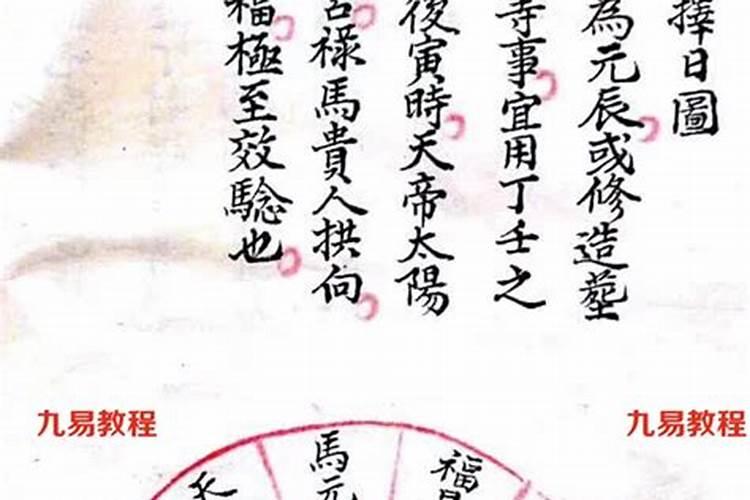 擇日圖
為元辰或修造塟
事宜用丁壬之
後寅時天帝太陽
祿馬貴人拱向
福極至效騐也
九易教程
九易教程
福
馬元
天